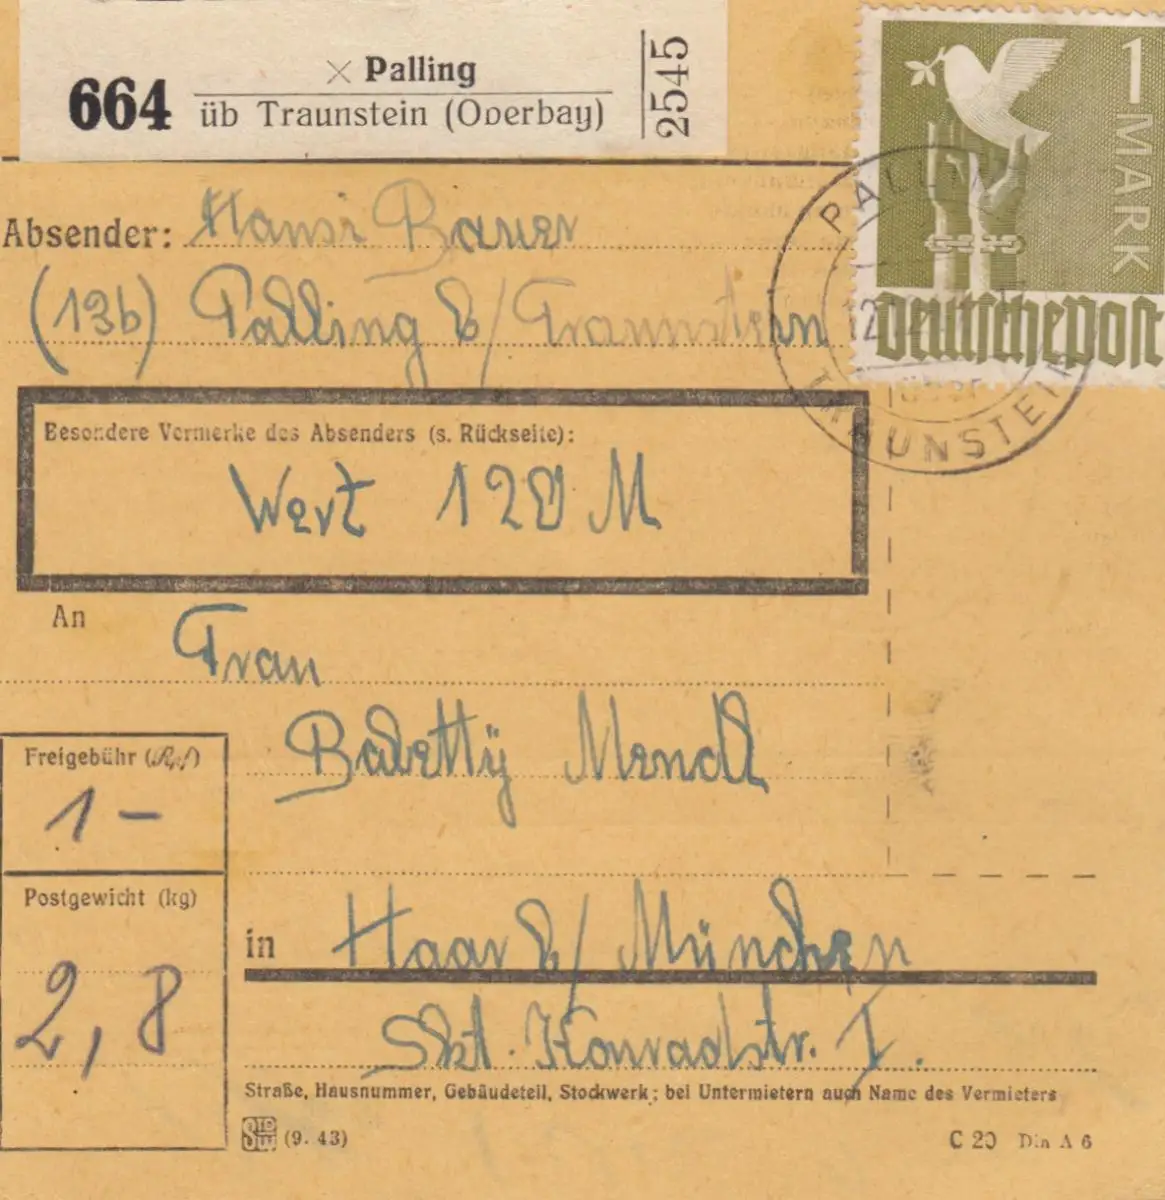 664
× Palling
üb Traunstein (Oberbay)
2545
1 MARK
Deutsche Post
PALLING
TRAUNSTEIN
über
Absender: Hansi Bauer
(13b) Palling b/Traunstein
Besondere Vermerke des Absenders (s. Rückseite):
Wert 120 M
An
Frau
Babetty Mendl
Freigebühr (Rpf)
1 —
Postgewicht (kg)
2,8
in Haar b/München
Skt. Konradstr. 1.
Straße, Hausnummer, Gebäudeteil, Stockwerk; bei Untermietern auch Name des Vermieters
(9. 43)
C 20 Din A 6